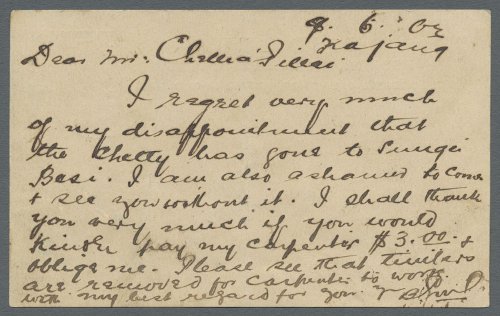 9. 6. 02
Kajang
Dear Mr. Chellia Pillai
I regret very much
of my disappointment that
the Chetty has gone to Sungei
Besi. I am also ashamed to come
+ see you without it. I shall thank
you very much if you would
kindly pay my carpenter $3.00. +
oblige me. Please see that timbers
are removed for carpenter to work.
with my best regard for you.